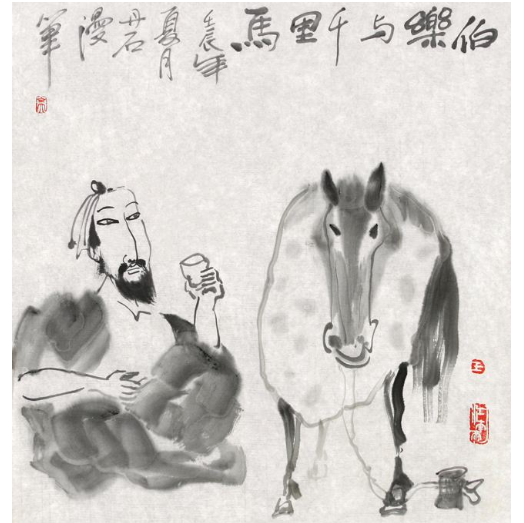 伯樂与千里馬
壬辰年
夏月
丹石
漫
筆